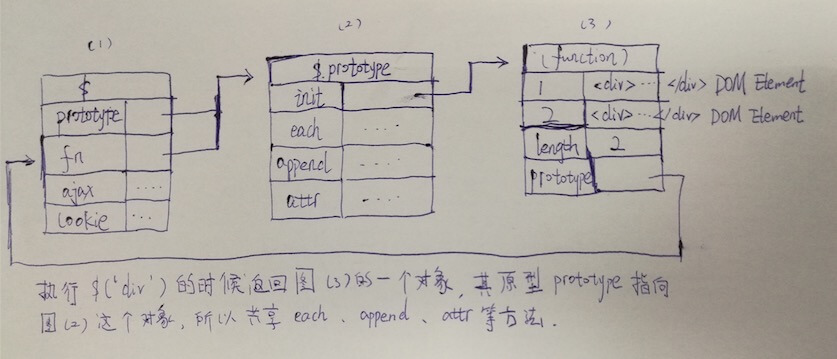 (1)
$
prototype
fn
ajax ....
cookie ...
(2)
$.prototype
init
each ....
append ....
attr ....
(3)
(function)
1 <div>...</div> DOM Element
2 <div>...</div> DOM Element
length 2
prototype
执行 $('div') 的时候返回图(3)的一个对象,其原型 prototype 指向
图(2)这个对象,所以共享 each、append、attr 等方法.